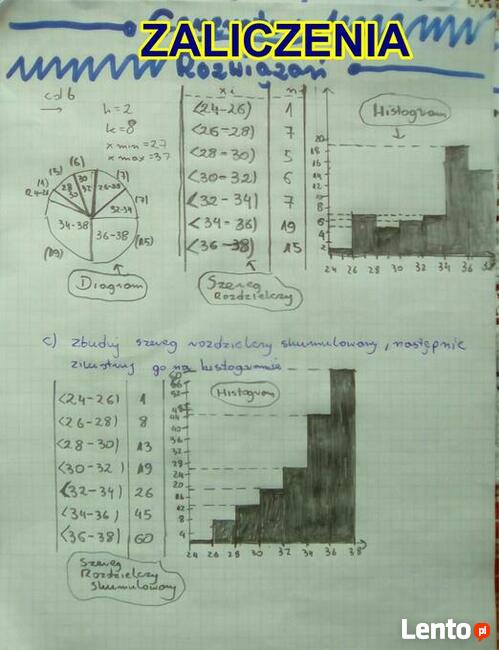 ZALICZENIA
Rozwiązań
cd b
h = 2
k = 8
x min = 27
x max = 37
xi n
<24-26) 1
<26-28) 7
<28-30) 5
<30-32) 6
<32-34) 7
<34-36) 19
<36-38) 15
Histogram
20
18
16
14
12
10
8
6
4
2
24 26 28 30 32 34 36 38
(1) (5) (6) (7)
24-26 28 30 30 32 26-28
(7)
32-34
34-38 36-38
(19) (15)
Diagram
Szereg
Rozdzielczy
c) zbuduj szereg rozdzielczy skumulowany, następnie
zilustruj go na histogramie
<24-26) 1
<26-28) 8
<28-30) 13
<30-32) 19
<32-34) 26
<34-36) 45
<36-38) 60
Histogram
60
56
52
48
44
40
36
32
28
24
20
16
12
8
4
24 26 28 30 32 34 36 38
Szereg
Rozdzielczy
skumulowany
Lento.pl